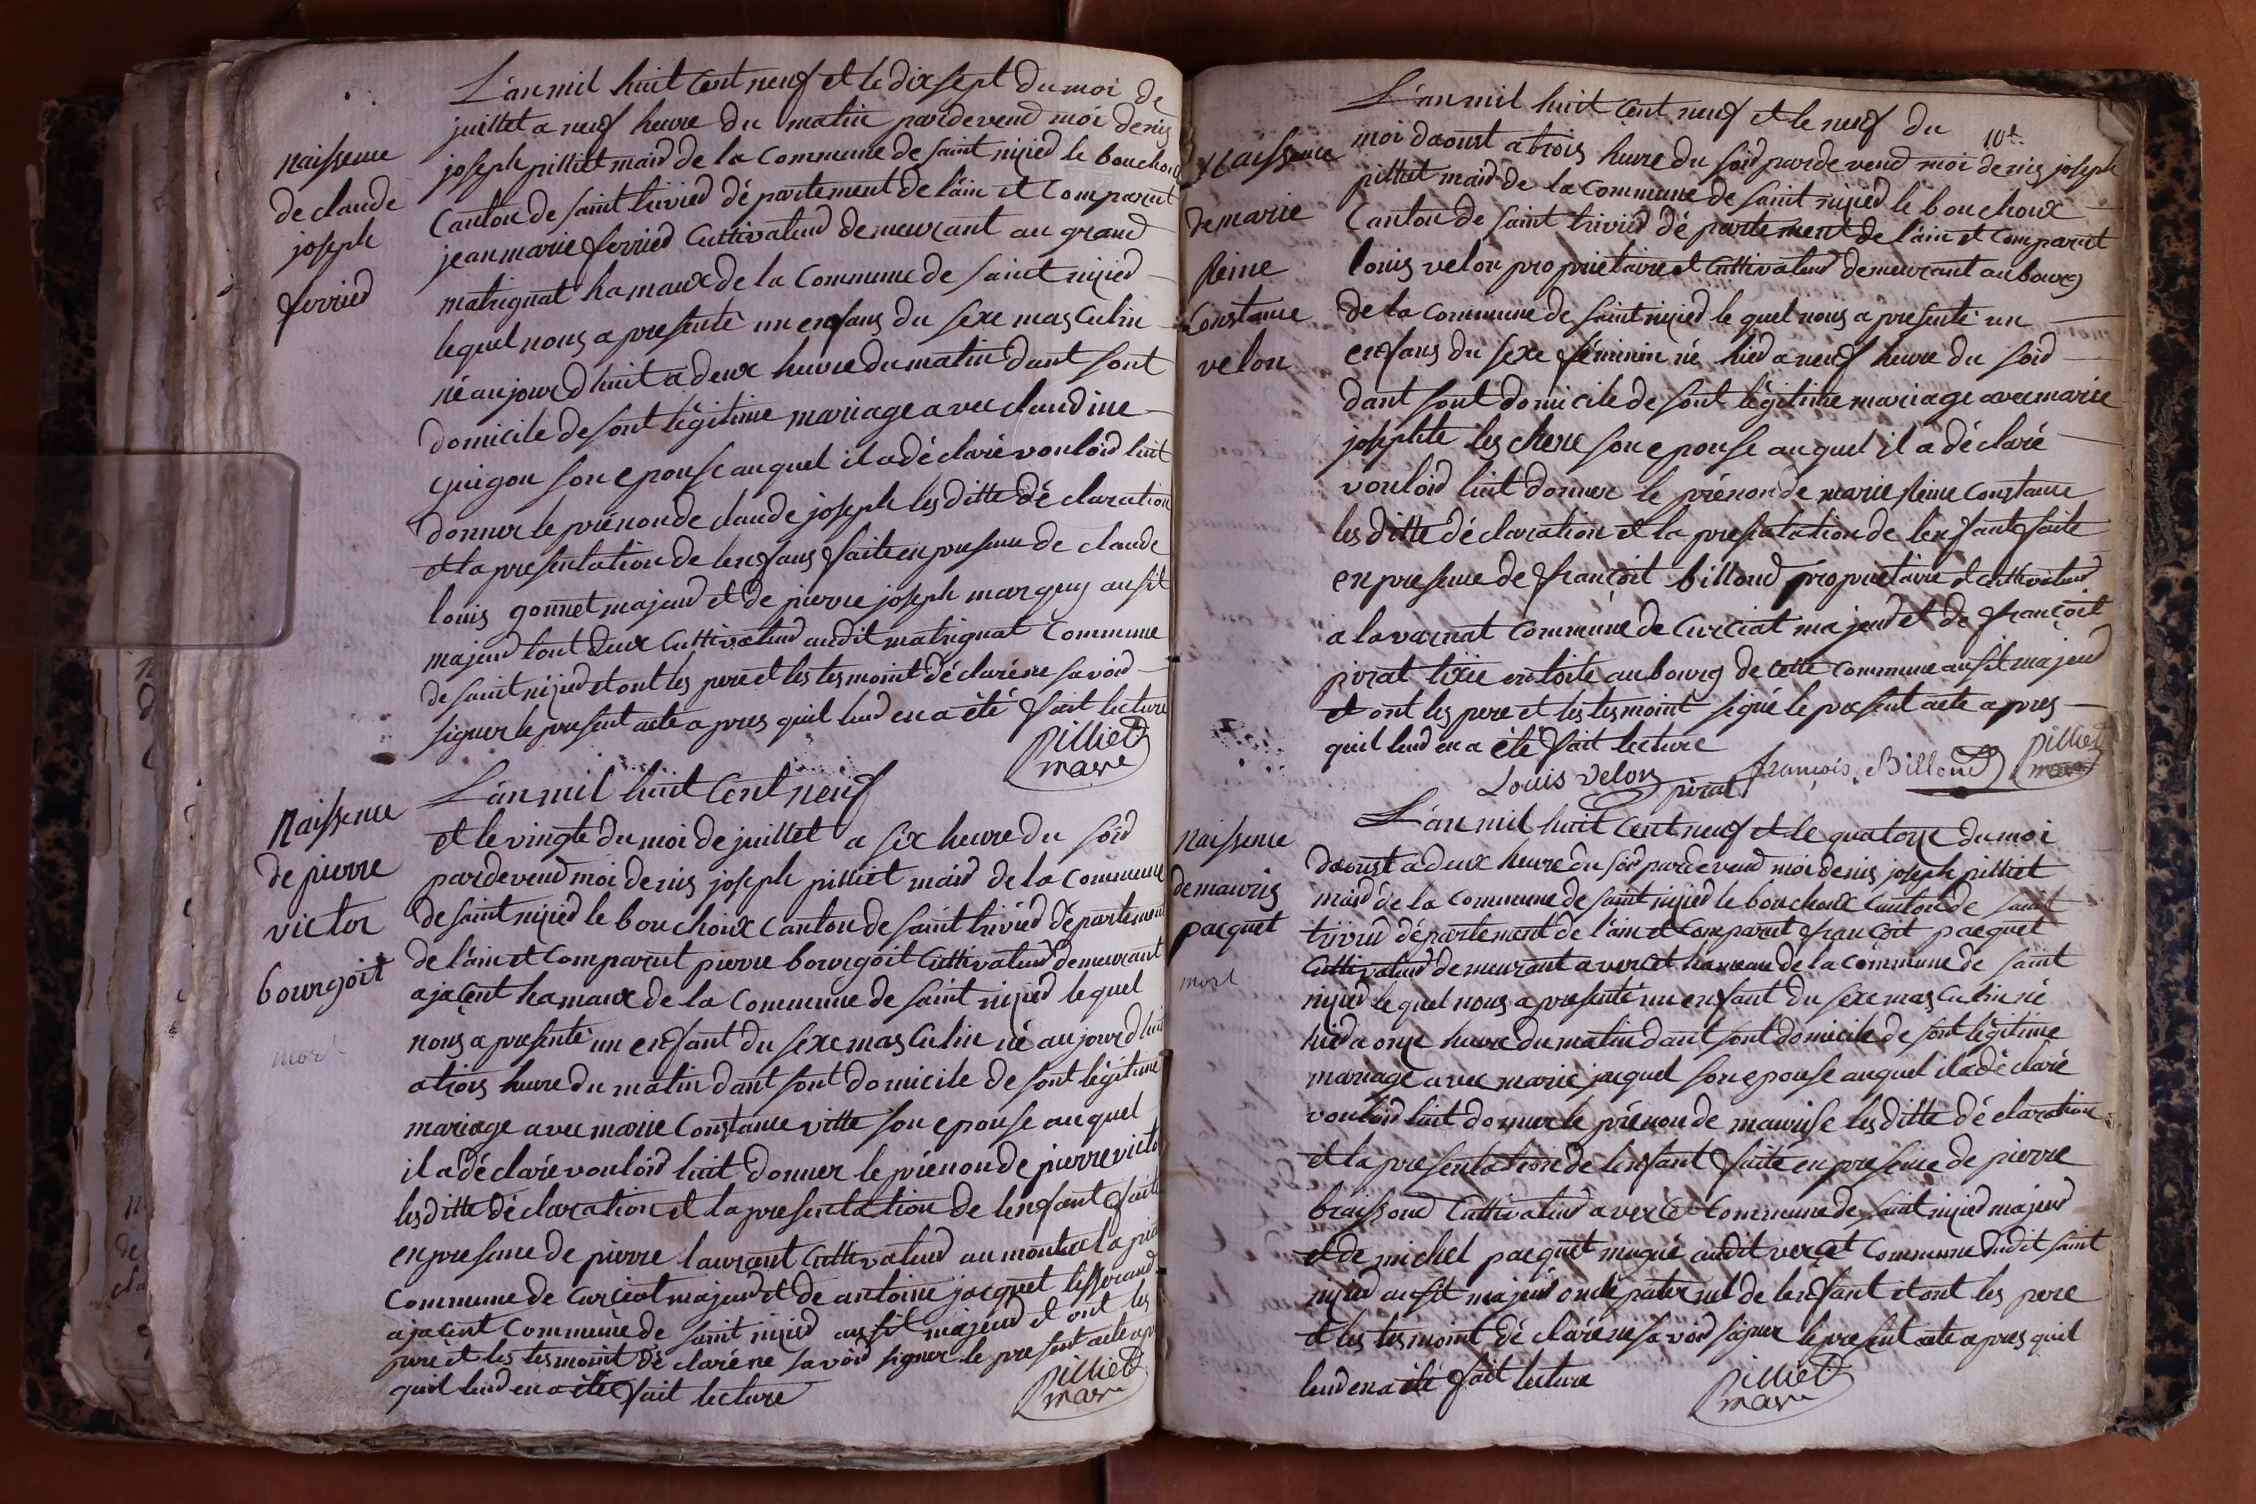 naissence
de claude
joseph
ferried
L'an mil huit Cent neuf et le dix sept du moi de
juillet a neuf heure du matin pardevend moi denis
joseph pilliet maid de la Commune de saint nizied le bouchoux
Canton de saint trivied département de l'ain et Comparut
jean marie ferried Cultivateud demeurant au grand
matignat hamaux de la Commune de saint nizied
lequel nous a presenté un enfans du sexe masCulin
né aujourdhuit a deux heure du matin dant sont
domicile de sont légitime mariage avec claudine
guigon son epouse auquel il a déclaré vouloid luit
donner le prénon de claude joseph les ditte déclaration
et la presentation de lenfans faite en presence de claude
louis gonnet majeud et de pierre joseph marguy ausit
majeud tout deux Cultivateud audit matignat Commune
de saint nizied et ont les pere et les tesmoint déclaré ne savoid
signer le present acte apres quil leud en a été fait lecture
Pilliet
maire
Naissence
de pierre
victor
bourgoit
mort
L'an mil huit Cent neuf
et le vingte du moi de juillet a six heure du soid
pardevend moi denis joseph pilliet maid de la Commune
de saint nizied le bouchoux Canton de saint trivied département
de l'ain et Comparut pierre bourgoit Cultivateud demeurant
a jacent hamaux de la Commune de saint nizied lequel
nous a presenté un enfant du sexe masCulin né aujourdhuit
a trois heure du matin dant sont domicile de sont légitime
mariage avec marie Constance vitte son epouse auquel
il a déclaré vouloid luit donner le prénon de pierre victor
les ditte déclaration et la presentation de lenfant faite
en presence de pierre laurent Cultivateud au
Commune de Curciat majeud et de antoine jacquet tisserand
a jacent Commune de saint nizied ausit majeud et ont les
pere et les tesmoint déclaré ne savoid signer le present acte apres
quil leud en a été fait lecture
Pilliet
maire
10e.
Naissence
de marie
Reine
Constance
velon
L'an mil huit Cent neuf et le neuf du
moi daoust a trois heure du soid pardevend moi denis joseph
pilliet maid de la Commune de saint nizied le bouchoux
Canton de saint trivied département de l'ain et Comparut
louis velon propriétaire et Cultivateud demeurant au bourg
de la Commune de saint nizied le quel nous a presenté un
enfans du sexe féminin né hied a neuf heure du soid
dant sont domicile de sont légitime mariage avec marie
josephte leschere son epouse auquel il a déclaré
vouloid luit donner le prénon de marie Reine Constance
les ditte déclaration et la presentation de lenfant faite
en presence de françoit billoud propriétaire et cultivateud
a la varnat Commune de Curciat majeud et de françoit
pirat au bourg de cette commune ausit majeud
et ont les pere et les tesmoint signé le present acte apres
quil leud en a été fait lecture
Louis Velon pirat françois Billoud Pilliet
maire
Naissence
de mauris
pacquet
mort
L'an mil huit Cent neuf et le quatorze du moi
daoust a deux heure du soid pardevend moi denis joseph pilliet
maid de la Commune de saint nizied le bouchoux Canton de saint
trivied département de l'ain et Comparut françoit pacquet
Cultivateud demeurant a vercet hameau de la Commune de saint
nizied le quel nous a presenté un enfant du sexe masCulin né
hied a onze heure du matin dant sont domicile de sont légitime
mariage avec marie jacquet son epouse auquel il a déclaré
vouloid luit donner le prénon de maurise les ditte déclaration
et la presentation de lenfant faite en presence de pierre
braissoud Cultivateud a vercet Commune de saint nizied majeud
et de michel pacquet audit vercet Commune dudit saint
nizied ausit majeud oncle paternel de lenfant et ont les pere
et les tesmoint déclaré ne savoid signer le present acte apres quil
leud en a été fait lecture
Pilliet
maire